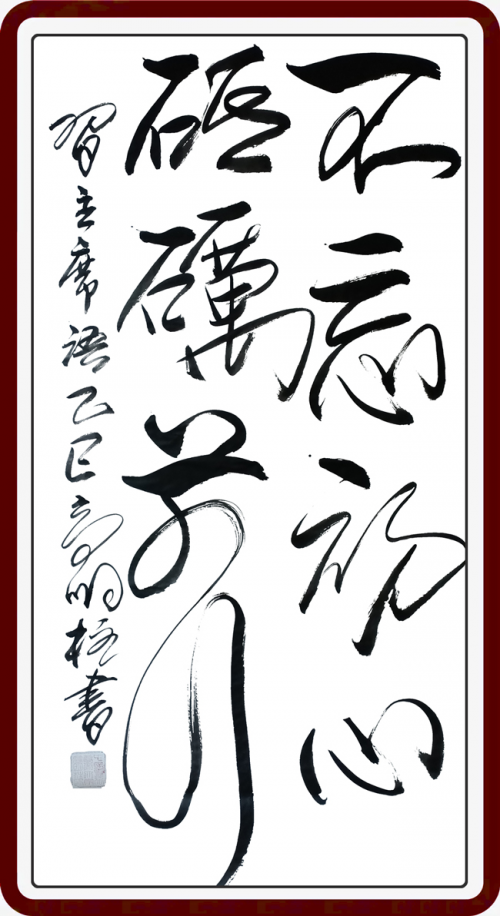 不忘初心
砥砺前行
習主席語乙巳高明柱書